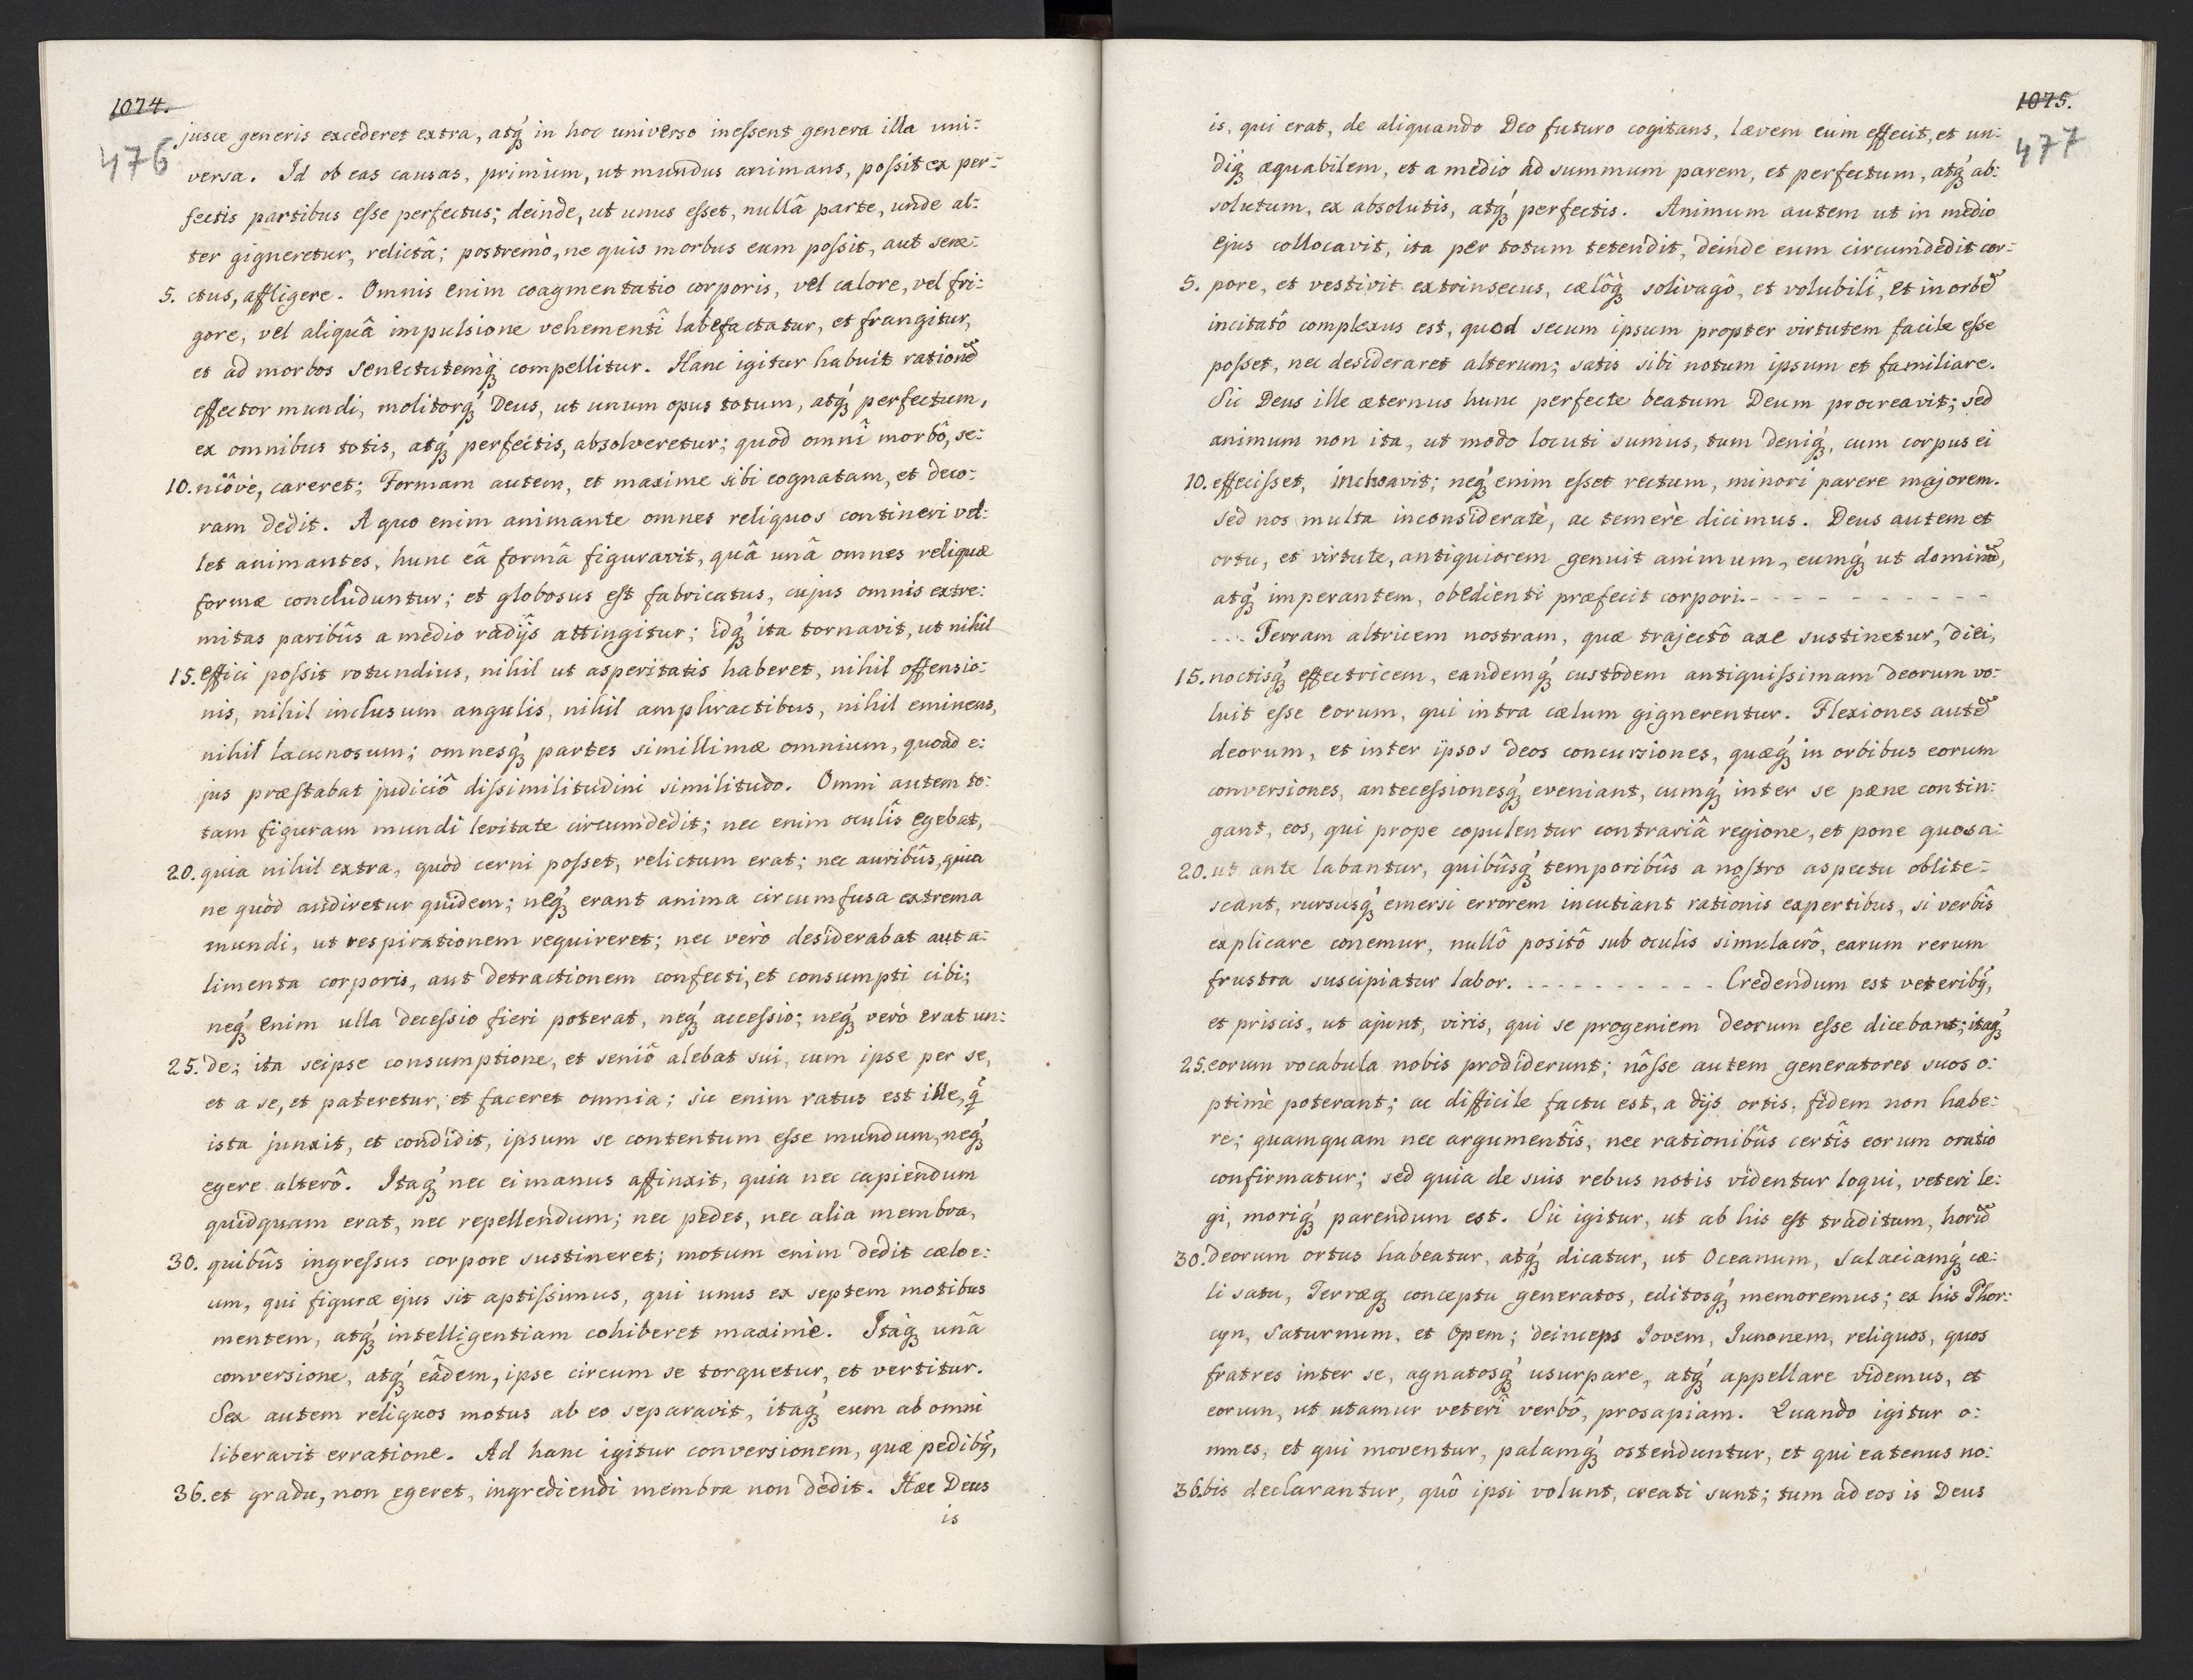 1074.
476
jusce generis excederet extra, atq́ꝫ in hoc universo inessent genera illa uni:
versa. Id ob eas causas, primium, ut mundus animans, possit ex per:
fectis partibus esse perfectus; deinde, ut unus esset, nullâ parte, unde al:
ter gigneretur, relictâ; postremò, ne quis morbus eum possit, aut sene:
5. ctus, affligere. Omnis enim coagmentatio corporis, vel calore, vel fri:
gore, vel aliquâ impulsione vehementî labefactatur, et frangitur,
et ad morbos senectutemq́ꝫ compellitur. Hanc igitur habuit rationē
effector mundi, molitorq́ꝫ Deus, ut unum opus totum, atq́ꝫ perfectum,
ex omnibus totis, atq́ꝫ perfectis, absolveretur; quod omnî morbô, se:
10. niôvè, careret; Formam autem, et maxime sibi cognatam, et deco:
ram dedit. A quo enim animante omnes reliquos contineri vel:
let animantes, hunc eâ formâ figuravit, quâ unâ omnes reliquæ
formæ concluduntur; et globosus est fabricatus, cujus omnis extre:
mitas paribûs a medio radijs attingitur; idq́ꝫ ita tornavit, ut nihil
15. effici possit rotundius, nihil ut asperitatis haberet, nihil offensio:
nis, nihil inclusum angulis, nihil amphractibus, nihil eminens,
nihil lacunosum; omnesq́ꝫ partes simillimæ omnium, quoad e:
jus præstabat judiciô dissimilitudini similitudo. Omni autem to:
tam figuram mundi levitate circumdedit; nec enim oculîs egebat,
20. quia nihil extra, quòd cerni posset, relictum erat; nec auribûs, quia
ne quòd audiretur quidem; neq́ꝫ erant anima circumfusa extrema
mundi, ut respirationem requireret; nec verò desiderabat aut a:
limenta corporis, aut detractionem confecti, et consumpti cibi;
neq́ꝫ enim ulla decessio fieri poterat, neq́ꝫ accessio; neq́ꝫ verò erat un:
25. de; ita seipse consumptione, et seniô alebat sui, cum ipse per se,
et a se, et pateretur, et faceret omnia; sic enim ratus est ille, q̃
ista junxit, et condidit, ipsum se contentum esse mundum, neq́ꝫ
egere alterô. Itaq́ꝫ nec ei manus affinxit, quia nec capiendum
quidquam erat, nec repellendum; nec pedes, nec alia membra,
30. quibûs ingressus corpore sustineret; motum enim dedit cælo e:
um, qui figuræ ejus sit aptissimus, qui unus ex septem motibus
mentem, atq́ꝫ intelligentiam cohiberet maximè. Itaq́ꝫ unâ
conversione, atq́ꝫ eâdem, ipse circum se torquetur, et vertitur.
Sex autem reliquos motus ab eo separavit, itaq́ꝫ eum ab omni
liberavit erratione. Ad hanc igitur conversionem, quæ pedibq̃,
36. et gradu, non egeret, ingrediendi membra non dedit. Hæc Deus
is
1075.
477
is, qui erat, de aliquando Deo futuro cogitans, lævem eum effecit, et un:
diq́ꝫ æquabilem, et a medio ad summum parem, et perfectum, atq́ꝫ ab:
solutum, ex absolutis, atq́ꝫ perfectis. Animum autem ut in medio
ejus collocavit, ita per totum tetendit, deinde eum circumdedit cor:
5. pore, et vestivit extrinsecus, cælôq́ꝫ solivagô, et volubilî, et in orbē
incitatô complexus est, quod secum ipsum propter virtutem facile esse
posset, nec desideraret alterum; satis sibi notum ipsum et familiare.
Sic Deus ille æternus hunc perfecte beatum Deum procreavit; sed
animum non ita, ut modo locuti sumus, tum deniq́ꝫ, cum corpus ei
10. effecisset, inchoavit; neq́ꝫ enim esset rectum, minori parere majorem.
Sed nos multa inconsideratè, ac temerè dicimus. Deus autem et
ortu, et virtute, antiquiorem genuit animum, eumq́ꝫ ut dominū,
atq́ꝫ imperantem, obedienti præfecit corpori. - - - - - - - - - -
... Terram altricem nostram, quæ trajectô axe sustinetur, diei,
15. noctisq́ꝫ effectricem, eandemq́ꝫ custodem antiquissimam deorum vo:
luit esse eorum, qui intra cælum gignerentur. Flexiones autē
deorum, et inter ipsos deos concursiones, quæq́ꝫ in orbibus eorum
conversiones, antecessionesq́ꝫ eveniant, cumq́ꝫ inter se pæne contin:
gant, eos, qui prope copulentur contrariâ regione, et pone quos a:
20. ut ante labantur, quibûsq́ꝫ temporibûs a nostro aspectu oblite:
scant, rursusq́ꝫ emersi errorem incutiant rationis expertibus, si verbîs
explicare conemur, nullô positô sub oculis simulacrô, earum rerum
frustra suscipiatur labor. - - - - - - - - - - Credendum est veteribq̃,
et priscis, ut ajunt, viris, qui se progeniem deorum esse dicebant; itaq́ꝫ
25. eorum vocabula nobis prodiderunt; nôsse autem generatores suos o:
ptimè poterant; ac difficile factu est, a dijs ortis, fidem non habe:
re; quamquam nec argumentîs, nec rationibûs certîs eorum oratio
confirmatur; sed quia de suis rebus notis videntur loqui, veteri le:
gi, moriq́ꝫ parendum est. Sic igitur, ut ab his est traditum, horū
30. deorum ortus habeatur, atq́ꝫ dicatur, ut Oceanum, Salaciamq́ꝫ cæ:
li satu, Terræq́ꝫ conceptu generatos, editosq́ꝫ memoremus; ex his Phor:
cyn, Saturnum, et Opem; deinceps Jovem, Junonem, reliquos, quos
fratres inter se, agnatosq́ꝫ usurpare, atq́ꝫ appellare videmus, et
eorum, ut utamur veterî verbô, prosapiam. Quando igitur o:
mnes, et qui moventur, palamq́ꝫ ostenduntur, et qui eatenus no:
36. bis declarantur, quô ipsi volunt, creati sunt; tum ad eos is Deus